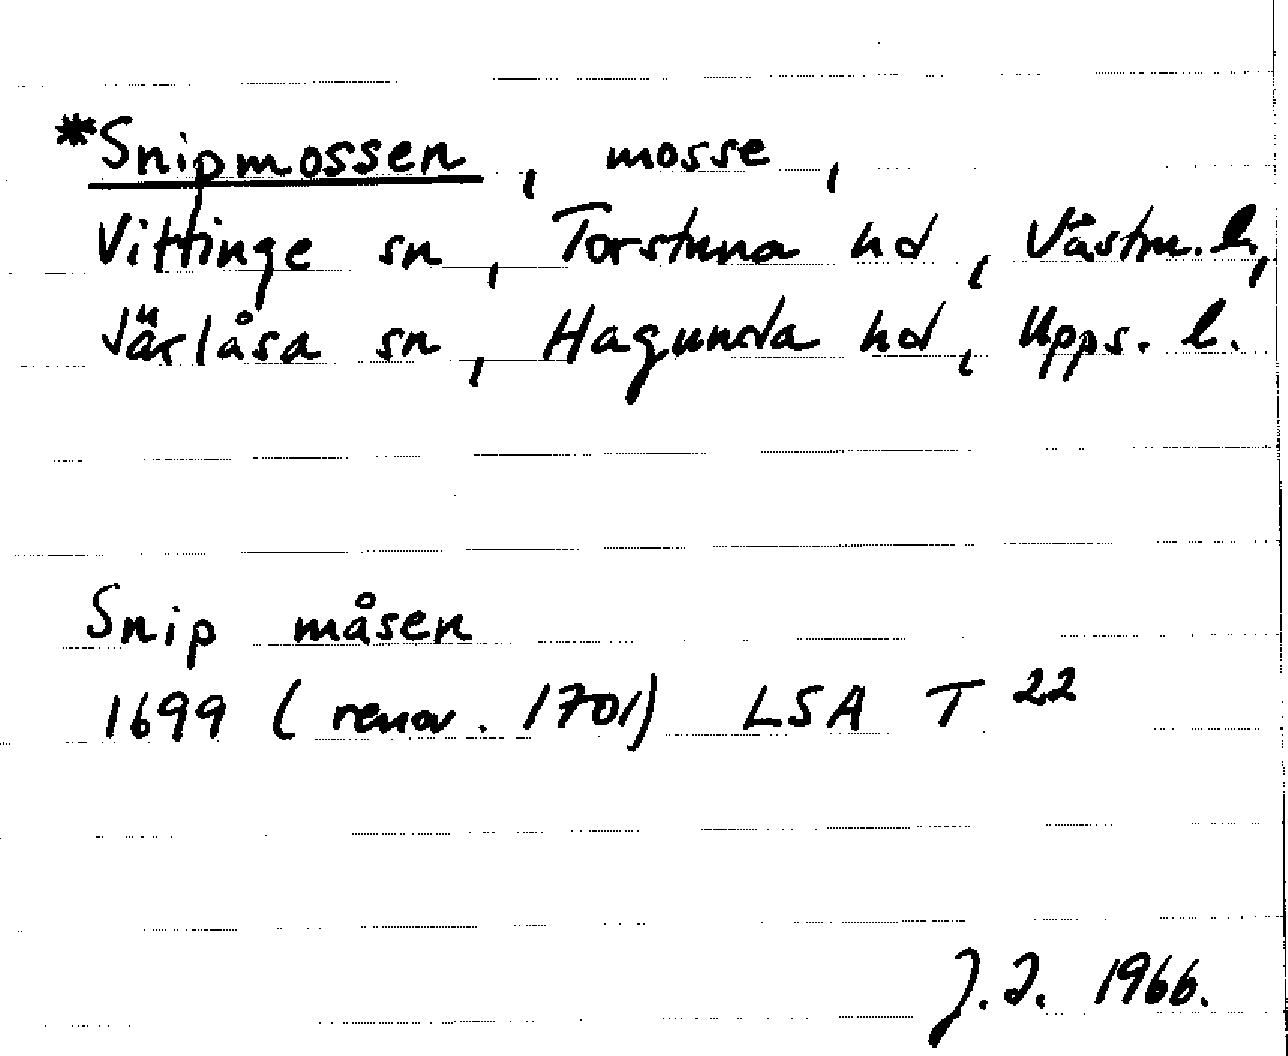 *Snipmossen, mosse,
Vittinge sn, Torstuna hd, Västm. l.,
Järlåsa sn, Hagunda hd, Upps. l.
Snip måsen
1699 (renov. 1701) LSA T 22
J.J. 1966.